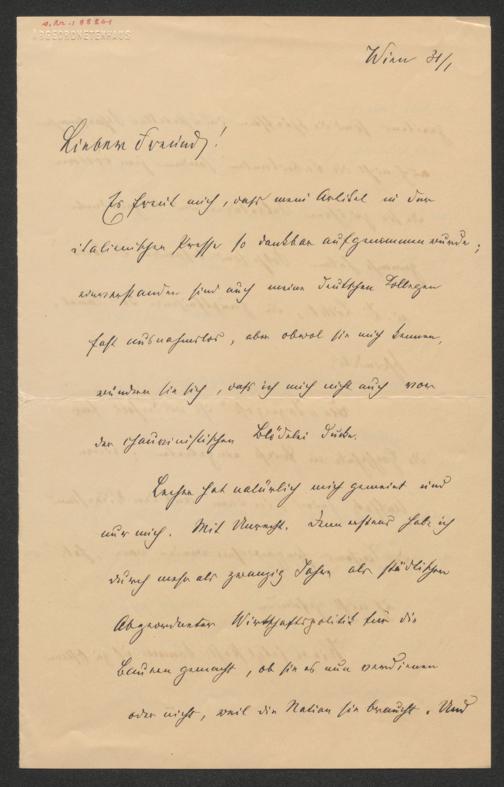 ABGEORDNETENHAUS
Wien 31/1
Lieber Freund!
Es freut mich, daß mein Artikel in der
italienischen Presse so dankbar aufgenommen wurde;
einverstanden sind auch meine deutschen Kollegen
fast ausnahmslos, aber obwol sie mich kennen,
wundern sie sich, daß ich mich nicht auch vor
der chauvinistischen Blödelei ducke.
Lecher hat natürlich mich gemeint und
nur mich. Mit Unrecht. Denn erstens habe ich
durch mehr als zwanzig Jahre als städtischer
Abgeordneter Wirtschaftspolitik für die
Bauern gemacht, ob sie es nun verdienen
oder nicht, weil die Nation sie braucht. Und